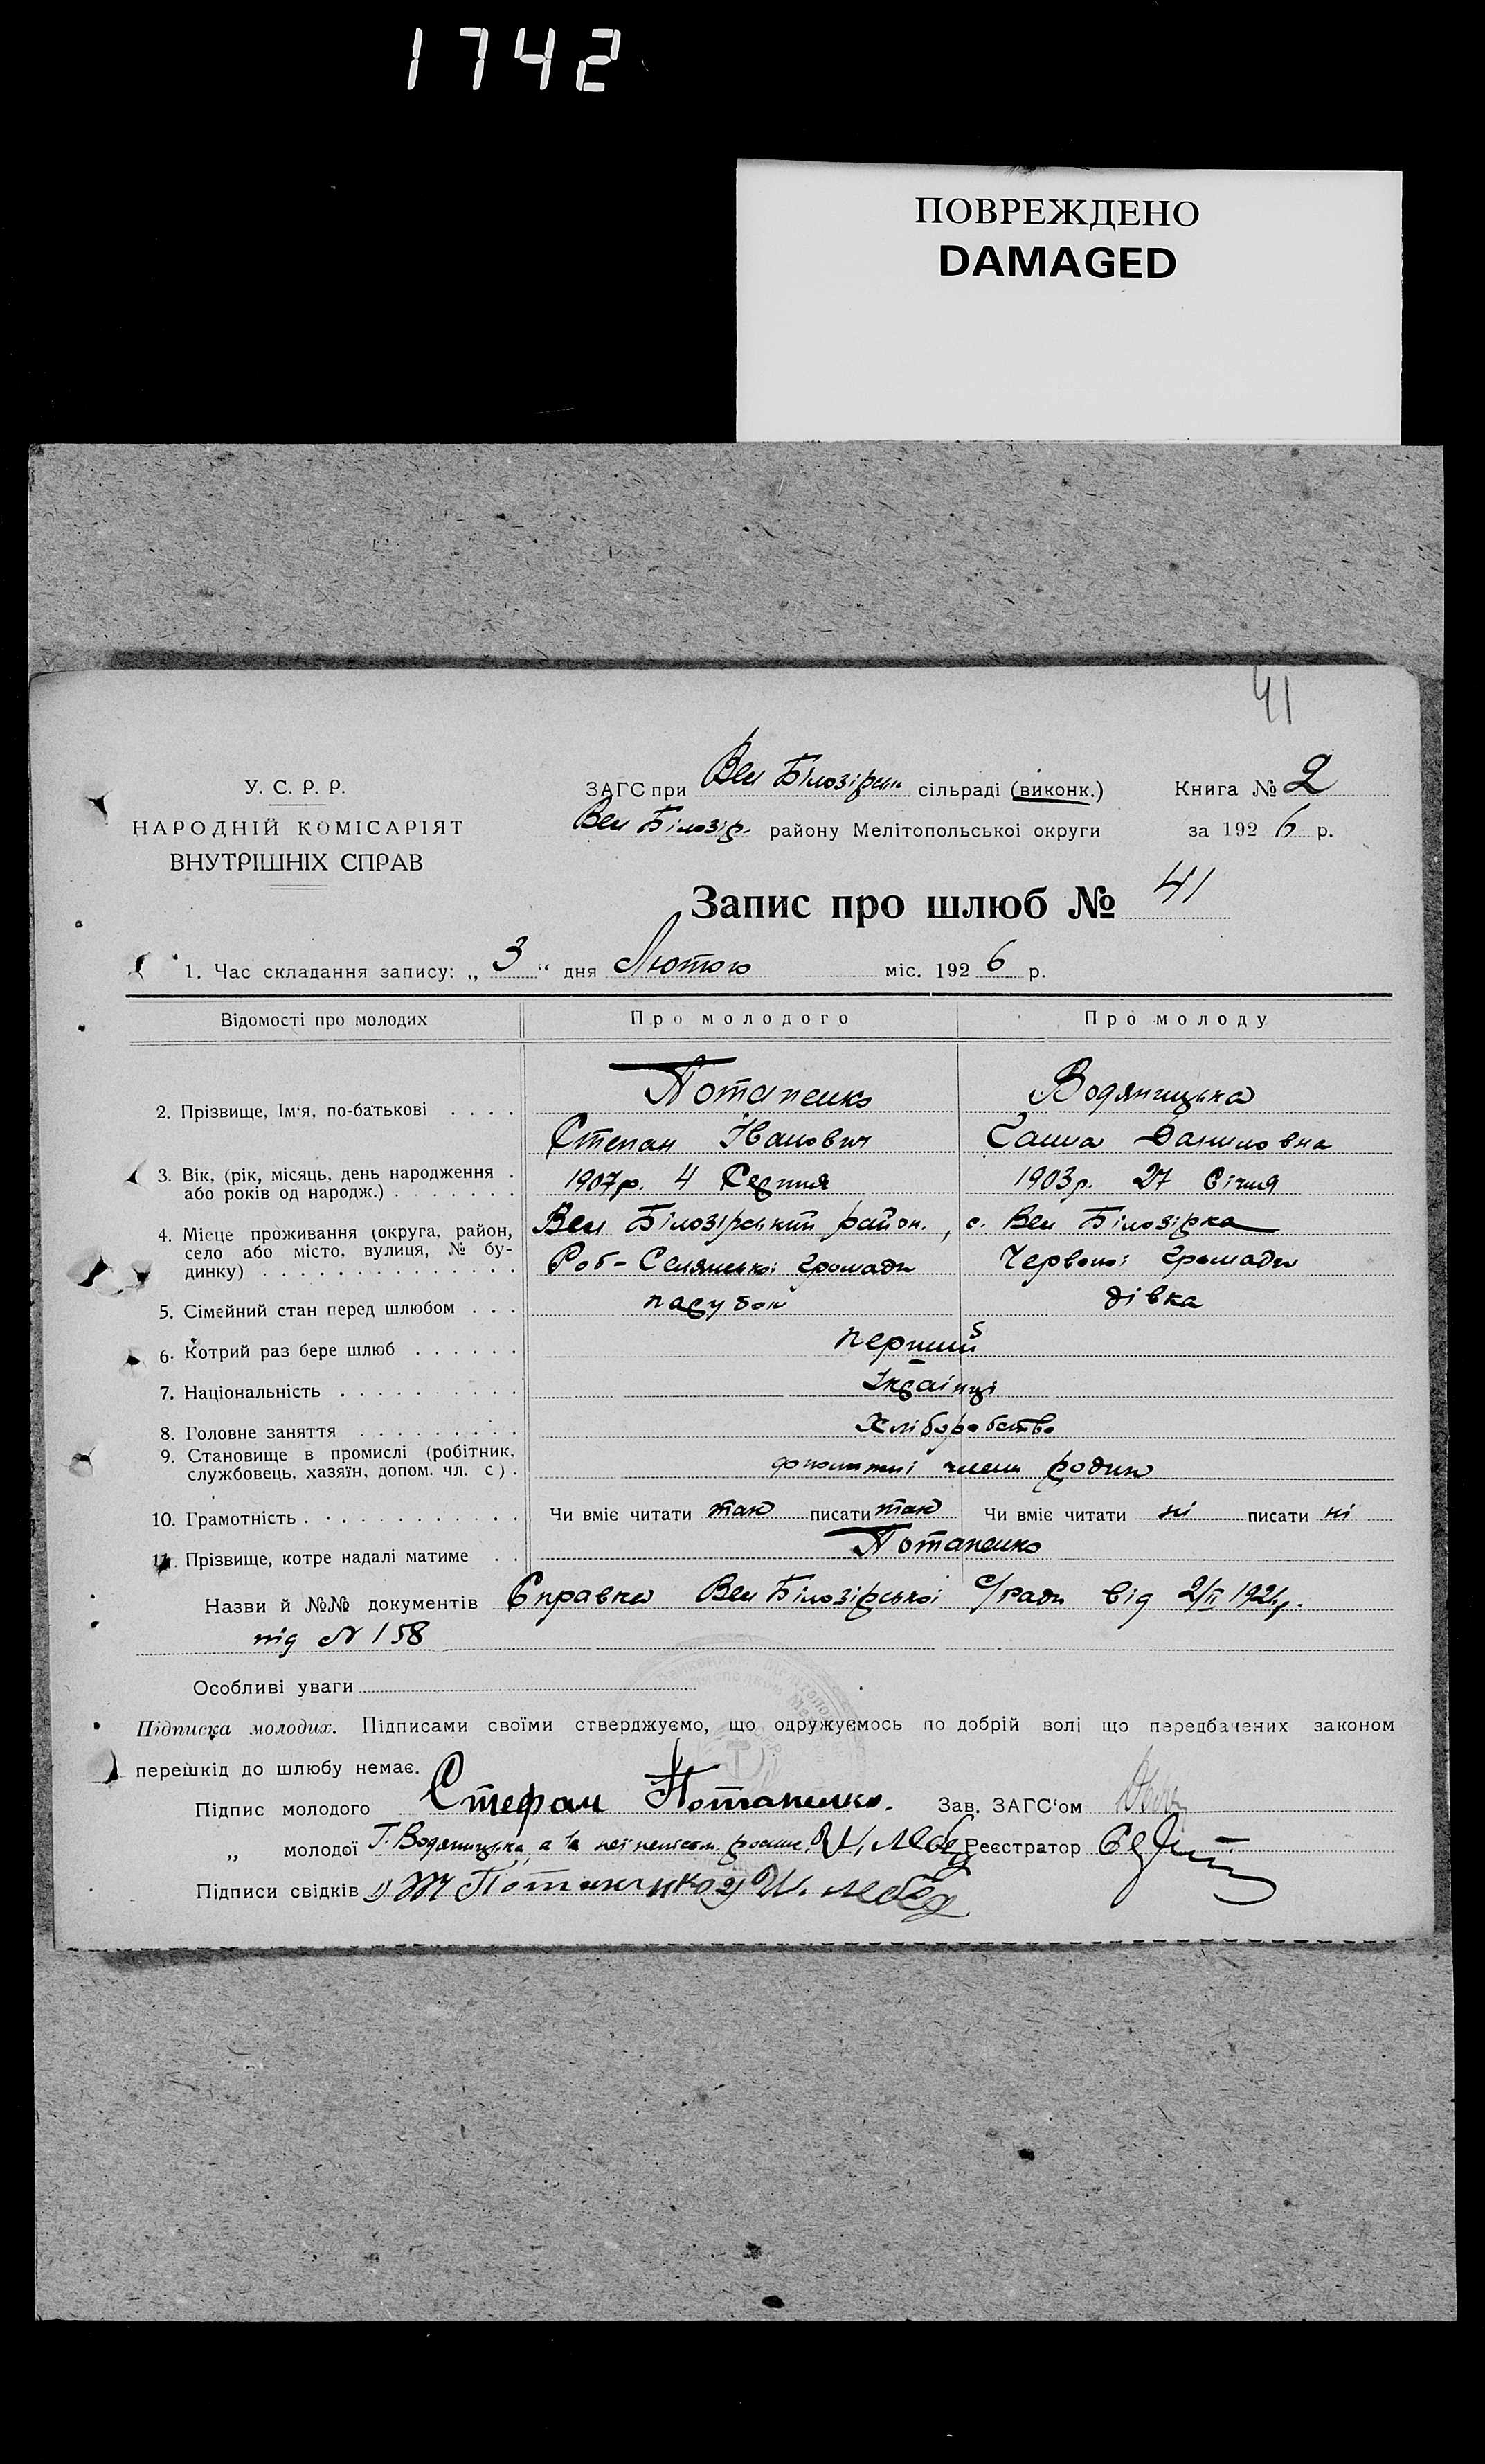 1742
ПОВРЕЖДЕНО
DAMAGED
41
У. С. Р. Р.
НАРОДНІЙ КОМІСАРІЯТ
ВНУТРІШНІХ СПРАВ
ЗАГС при Вел Білозірськ сільраді (виконк.) Книга № 2
Вел Білозір. району Мелітопольської округи за 1926 р.
Запис про шлюб № 41
1. Час складання запису: „ 3 “ дня Лютого міс. 1926 р.
Відомості про молодих Про молодого Про молоду
Потапенко Водяницька
2. Прізвище, Ім'я, по-батькові . . . .
Степан Іванович Даниловна
3. Вік, (рік, місяць, день народження .
або років од народж.) . . . . . . . 1907р. 4 Серпня 1903р. 27 Січня
4. Місце проживання (округа, район, Вел Білозірський район., с. Вел Білозірка
село або місто, вулиця, № бу-
динку) . . . . . . . . . . . . . . Роб-Селянської громади Червоної громади
5. Сімейний стан перед шлюбом . . . парубок дівка
6. Котрий раз бере шлюб . . . . . . перший
7. Національність . . . . . . . . . . Українці
8. Головне заняття . . . . . . . . . Хліборобство
9. Становище в промислі (робітник,
службовець, хазяїн, допом. чл. с) . допоміжні члени родини
10. Грамотність . . . . . . . . . . . Чи вміє читати так писати так Чи вміє читати ні писати ні
11. Прізвище, котре надалі матиме . . Потапенко
Назви й №№ документів Справка Вел Білозірської с/ради від 2/II 1926р.
під № 158
Особливі уваги
Підписка молодих. Підписами своїми стверджуємо, що одружуємось по добрій волі що передбачених законом
перешкід до шлюбу немає.
Підпис молодого Стефан Потапенко. Зав. ЗАГС'ом
„ молодої Г. Водяницька, а за неї неписьм. Лебед Реєстратор
Підписи свідків 1) Потапенко 2) Лебед